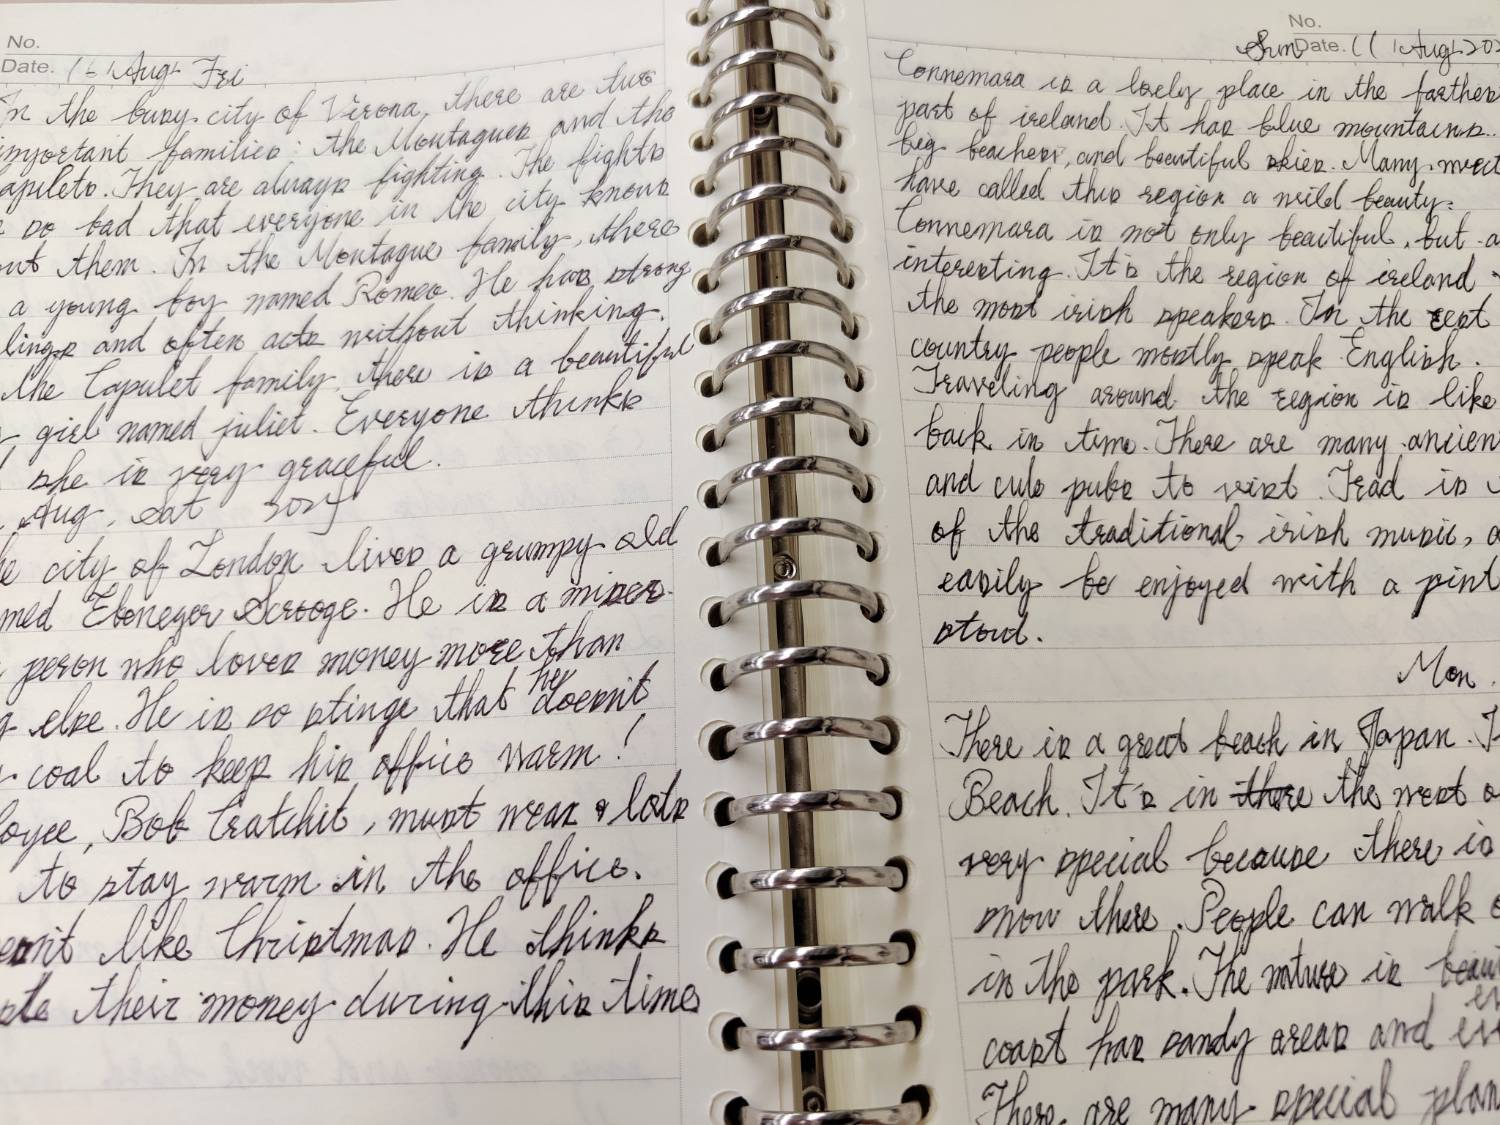 No.
Date. Aug Fri
In the busy city of Virona, there are two
important families: the Montagues and the
Capulets. They are always fighting. The fights
so bad that everyone in the city knows
out them. In the Montague family, there
a young boy named Romeo. He has strong
lings and often acts without thinking.
the Capulet family, there is a beautiful
girl named juliet. Everyone thinks
she is very graceful.
Aug, Sat 2024
e city of London lives a grumpy old
med Ebenezer Scrooge. He is a miser.
person who loves money more than
g else. He is so stinge that he doesn't
coal to keep his office warm!
loyee, Bob Cratchit, must wear lots
to stay warm in the office.
esn't like Christmas. He thinks
their money during this time
No.
Sun Date. 11 Aug 202
Connemara is a lovely place in the farthes
part of ireland. It has blue mountains.
big beaches, and beautiful skies. Many
have called this region a wild beauty.
Connemara is not only beautiful, but a
interesting. It's the region of ireland
the most irish speakers. In the rest
country people mostly speak English.
Traveling around the region is like
back in time. There are many ancien
and cule pubs to visit. Trad is
of the traditional irish music, a
easily be enjoyed with a pint
stout.
Mon.
There is a great beach in Japan. I
Beach. It's in the west o
very special because there is
snow there. People can walk o
in the park. The nature is beau
coast has sandy areas and ev
There are many special plan